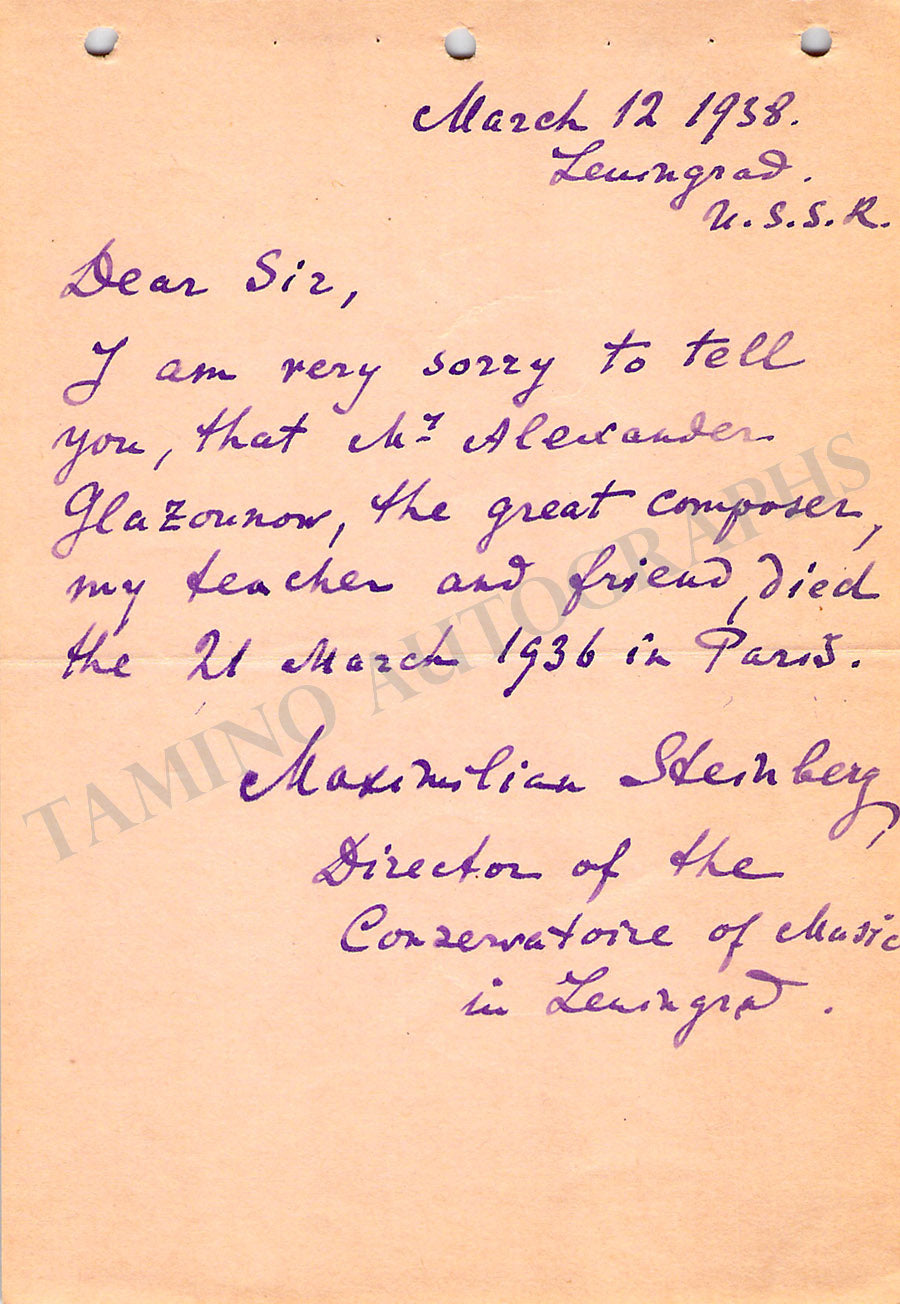 March 12 1938.
Leningrad.
U.S.S.R.
Dear Sir,
I am very sorry to tell
you, that Mr Alexander
Glazounow, the great composer,
my teacher and friend, died
the 21 March 1936 in Paris.
Maximilian Steinberg,
Director of the
Conservatoire of Music
in Leningrad.
TAMINO AUTOGRAPHS